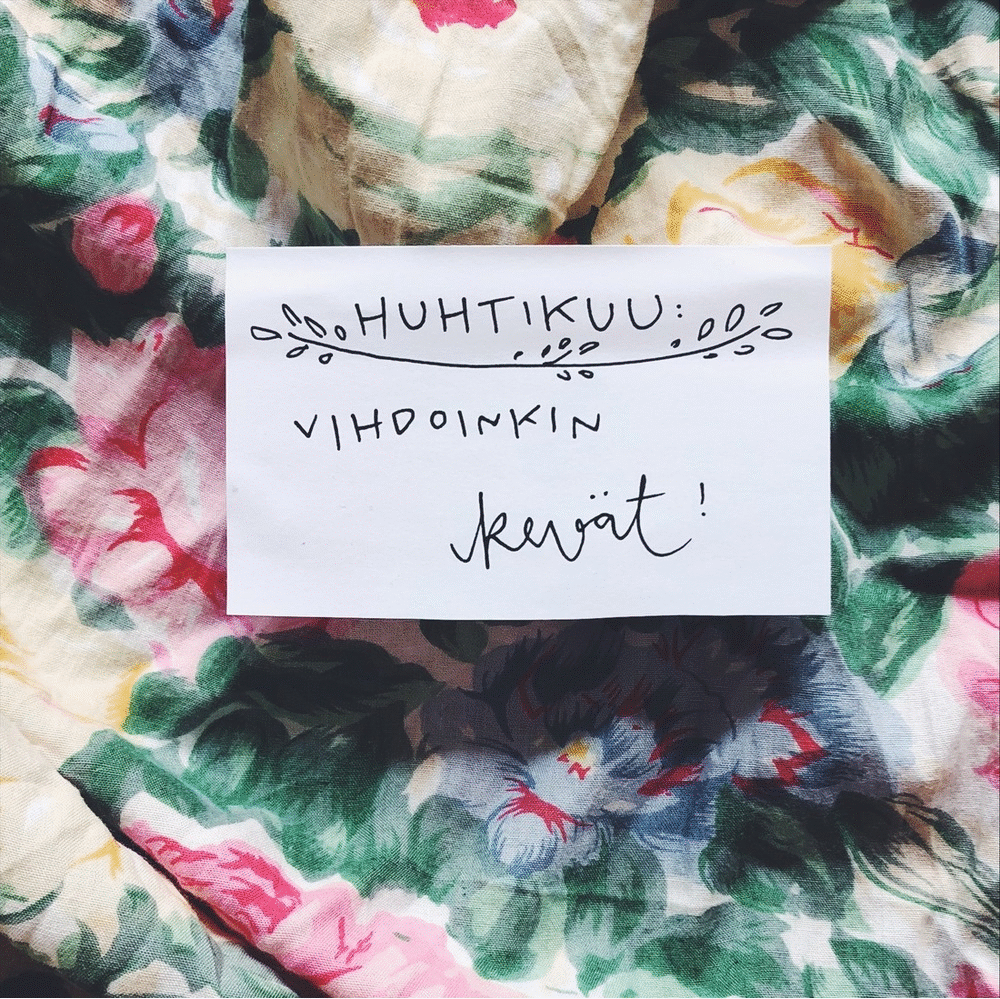 HUHTIKUU:
VIHDOINKIN
kevät!